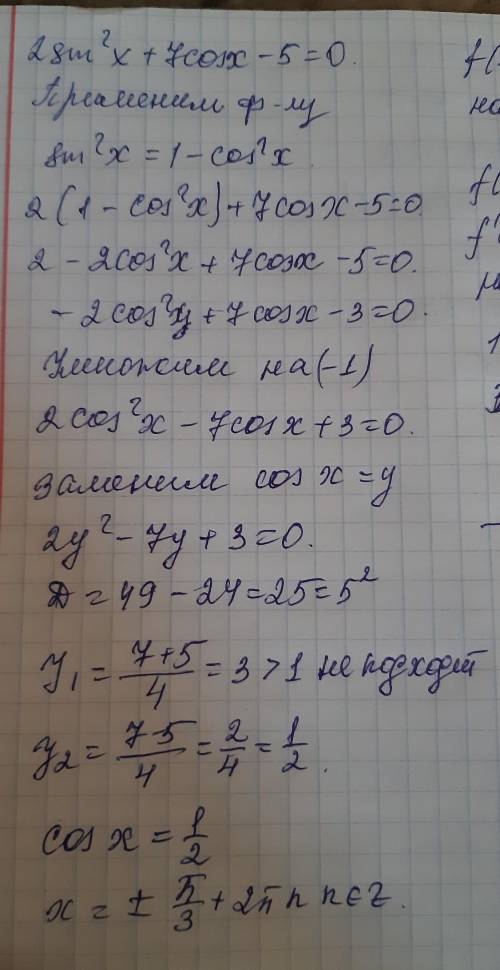 2sin²x + 7cosx - 5 = 0.
Применим ф-лу
sin²x = 1 - cos²x
2(1 - cos²x) + 7cosx - 5 = 0.
2 - 2cos²x + 7cosx - 5 = 0.
- 2cos²x + 7cosx - 3 = 0.
Умножим на (-1)
2cos²x - 7cosx + 3 = 0.
Заменим cos x = y
2y² - 7y + 3 = 0.
Д = 49 - 24 = 25 = 5²
y₁ = (7+5)/4 = 3 > 1 не подходит
y₂ = (7-5)/4 = 2/4 = 1/2.
cos x = 1/2
x = ± π/3 + 2πn n∈Z.